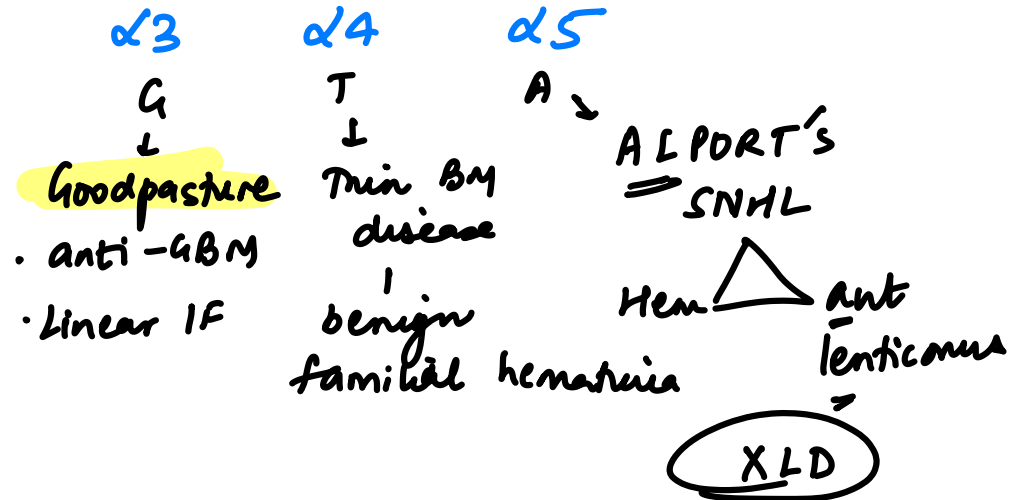 α3 α4 α5
G T A
Goodpasture
• anti-GBM
• Linear IF
Thin BM
disease
benign
familial hematuria
ALPORT's
SNHL
Hem ant
lenticonus
XLD